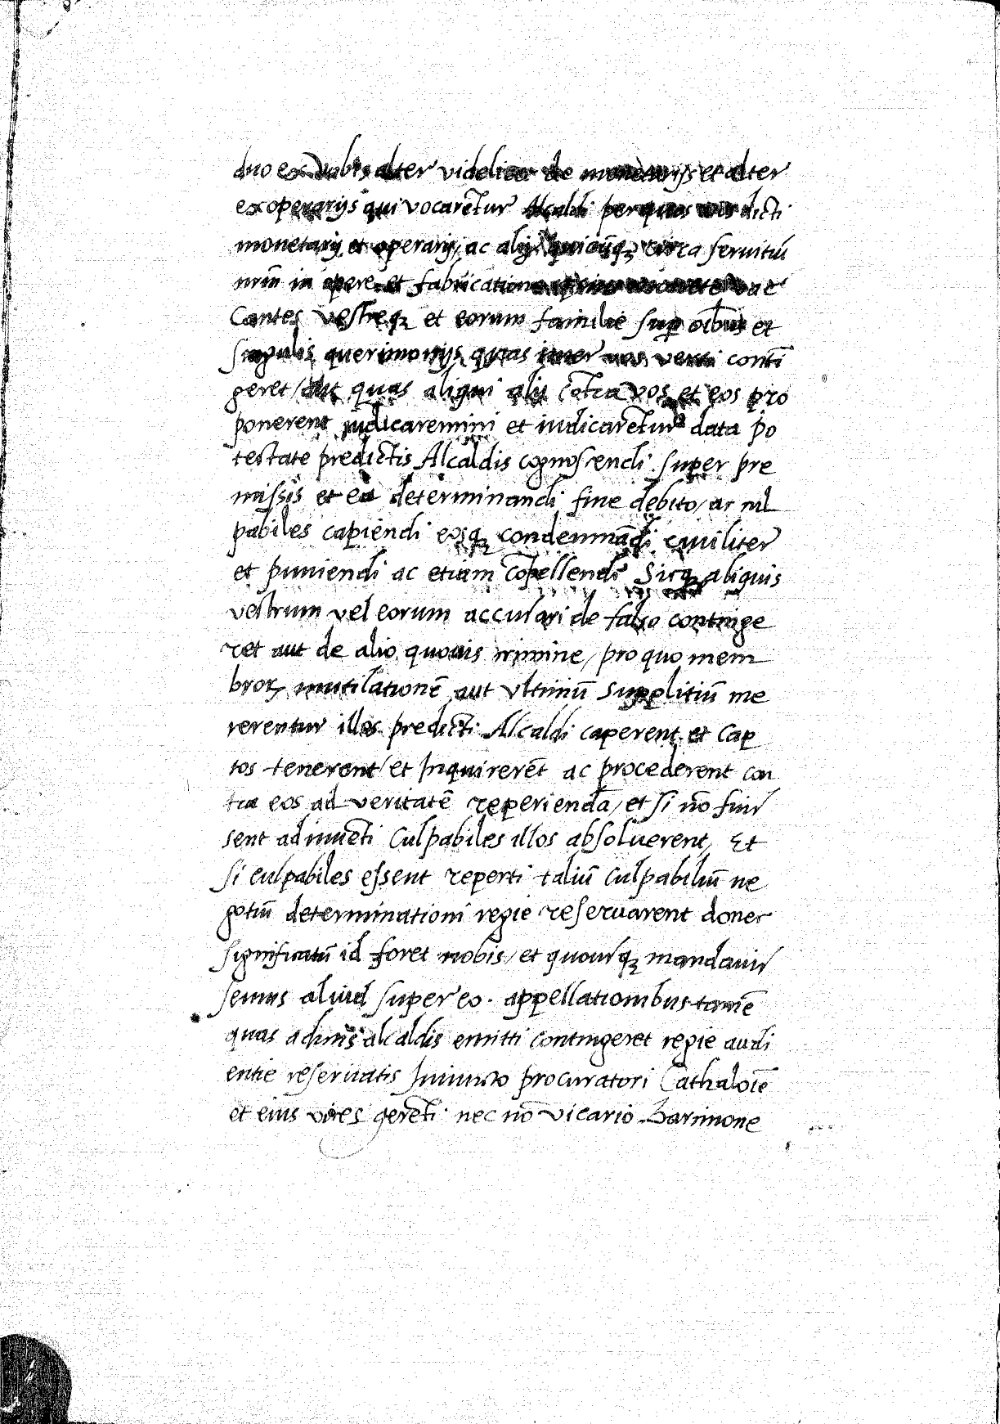 duo ex vobis alter videlicet de monetarijs et alter
ex operarijs qui vocaretur Alcaldi per quos vos dicti
monetarij et operarij, ac alij quicūq circa seruitiū
nrm̄ in opere et fabricatione monete va
cantes vestreq et eorum familie sup oībus et
singulis querimonijs quas inter vos verti conti
geret / aut quas aliqui alij cōtra vos et eos pro
ponerent iudicaremini et iudicarētur data po
testate predictis Alcaldis cognoscendi super pre
missis et ea determinandi fine debito / ac cul
pabiles capiendi eosq condemnādi ciuiliter
et puniendi ac etiam cōpellendi Sicq aliquis
vestrum vel eorum accusari de falso continge
ret aut de alio quouis crimine / pro quo mem
bror mutilationē aut vltimū suplitiū me
rerentur illos predicti Alcaldi caperent et cap
tos tenerent / et Inquirerēt ac procederent con
tra eos ad veritatē reperienda / et si nō fuis
sent adinuēti Culpabiles illos absoluerent, Et
si culpabiles essent reperti taliū Culpabiliū ne
gotiū determinationi regie reseruarent donec
significatū id foret nobis / et quousq mandauis
semus aliud super eo. appellationibus tamē
quas a dictis alcaldis emitti contingeret regie audi
entie reseruatis Iniuncto procuratori Cathaloīe
et eius vires gerēti nec nō vicario Barcinone